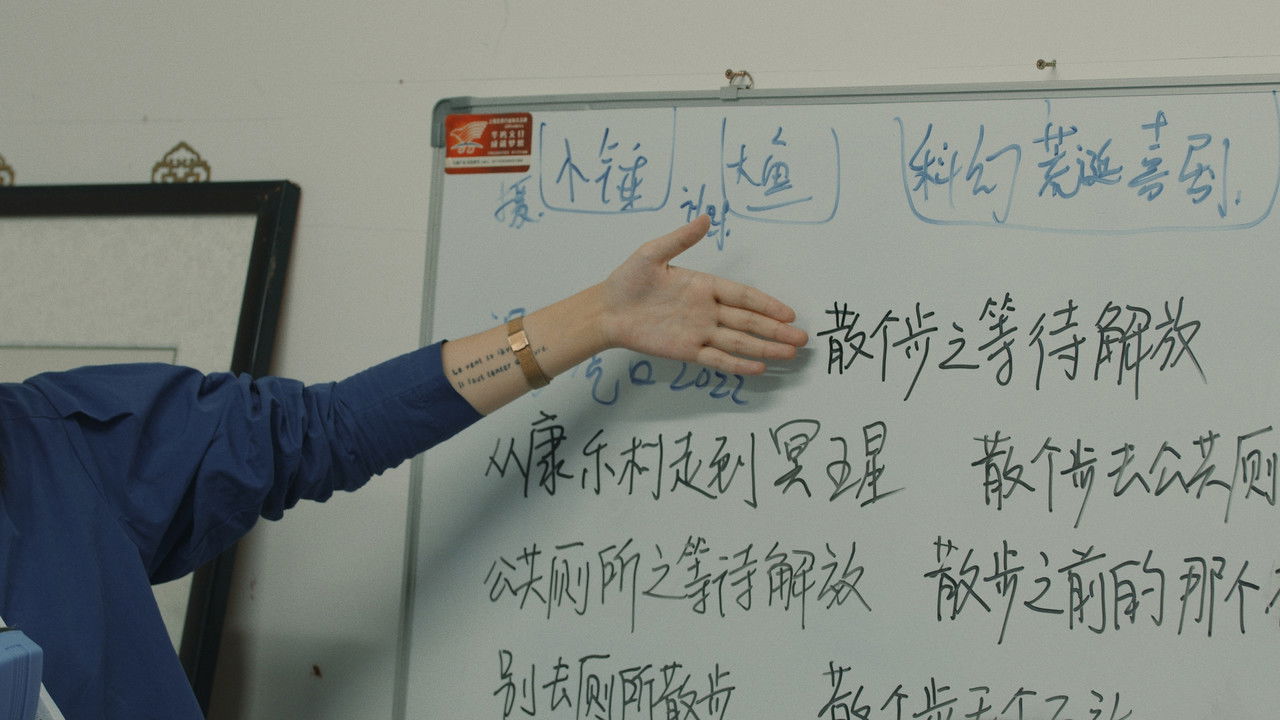 小锤 大鱼 科幻 荒诞 喜剧
援 训练
散个步之等待解放
Le vent se
il faut tenter
2022
从康乐村走到冥王星 散个步去公共厕
公共厕所之等待解放 散步之前的那个
别去厕所散步 散个步